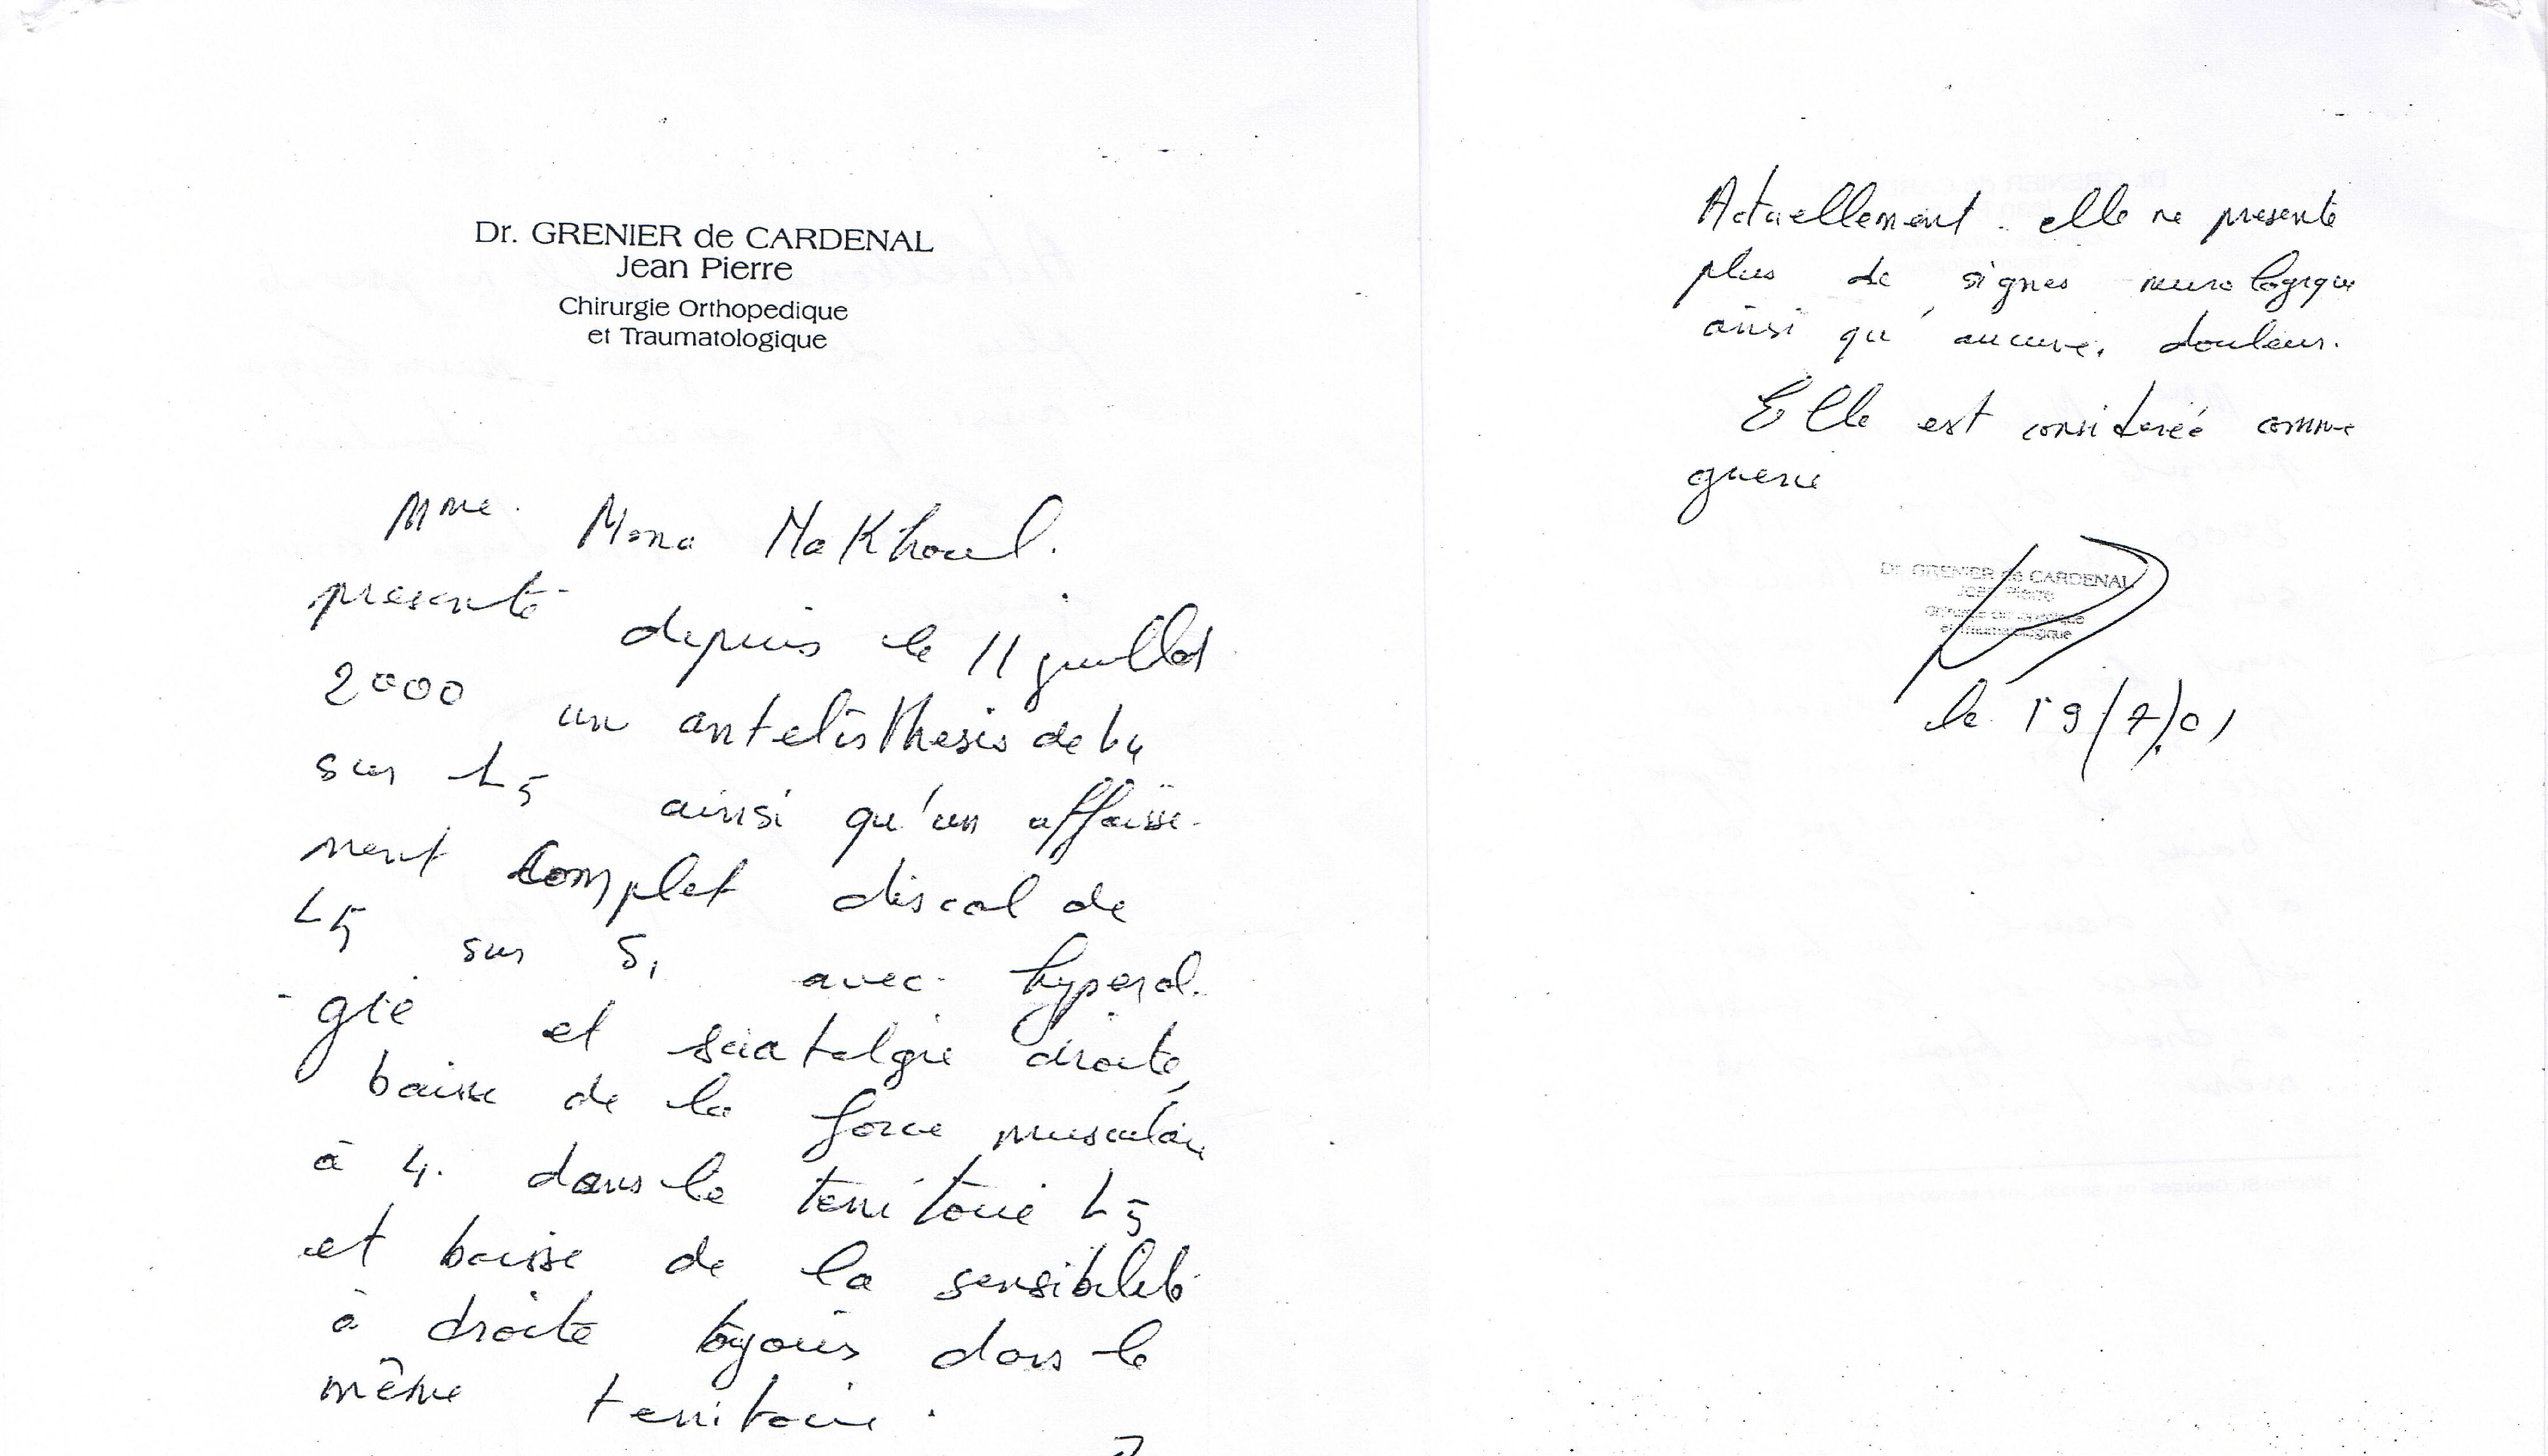 Dr. GRENIER de CARDENAL
Jean Pierre
Chirurgie Orthopedique
et Traumatologique
Mme. Mona Makhoul.
presente depuis le 11 juillet
2000 un antelisthesis de L4
sur L5 ainsi qu'un affaisse-
ment complet discal de
L5 sur S1 avec hyperal-
gie et sciatalgie droite,
baisse de la force musculaire
à 4. dans le territoire L5
et baisse de la sensibilité
à droite toujours dans le
même territoire.
Actuellement. elle ne presente
plus de signes neurologique
ainsi qu'aucune douleur.
Elle est considereé comme
guerie
Dr. GRENIER de CARDENAL
Jean Pierre
Chirurgie Orthopedique
et Traumatologique
le 19/7/01